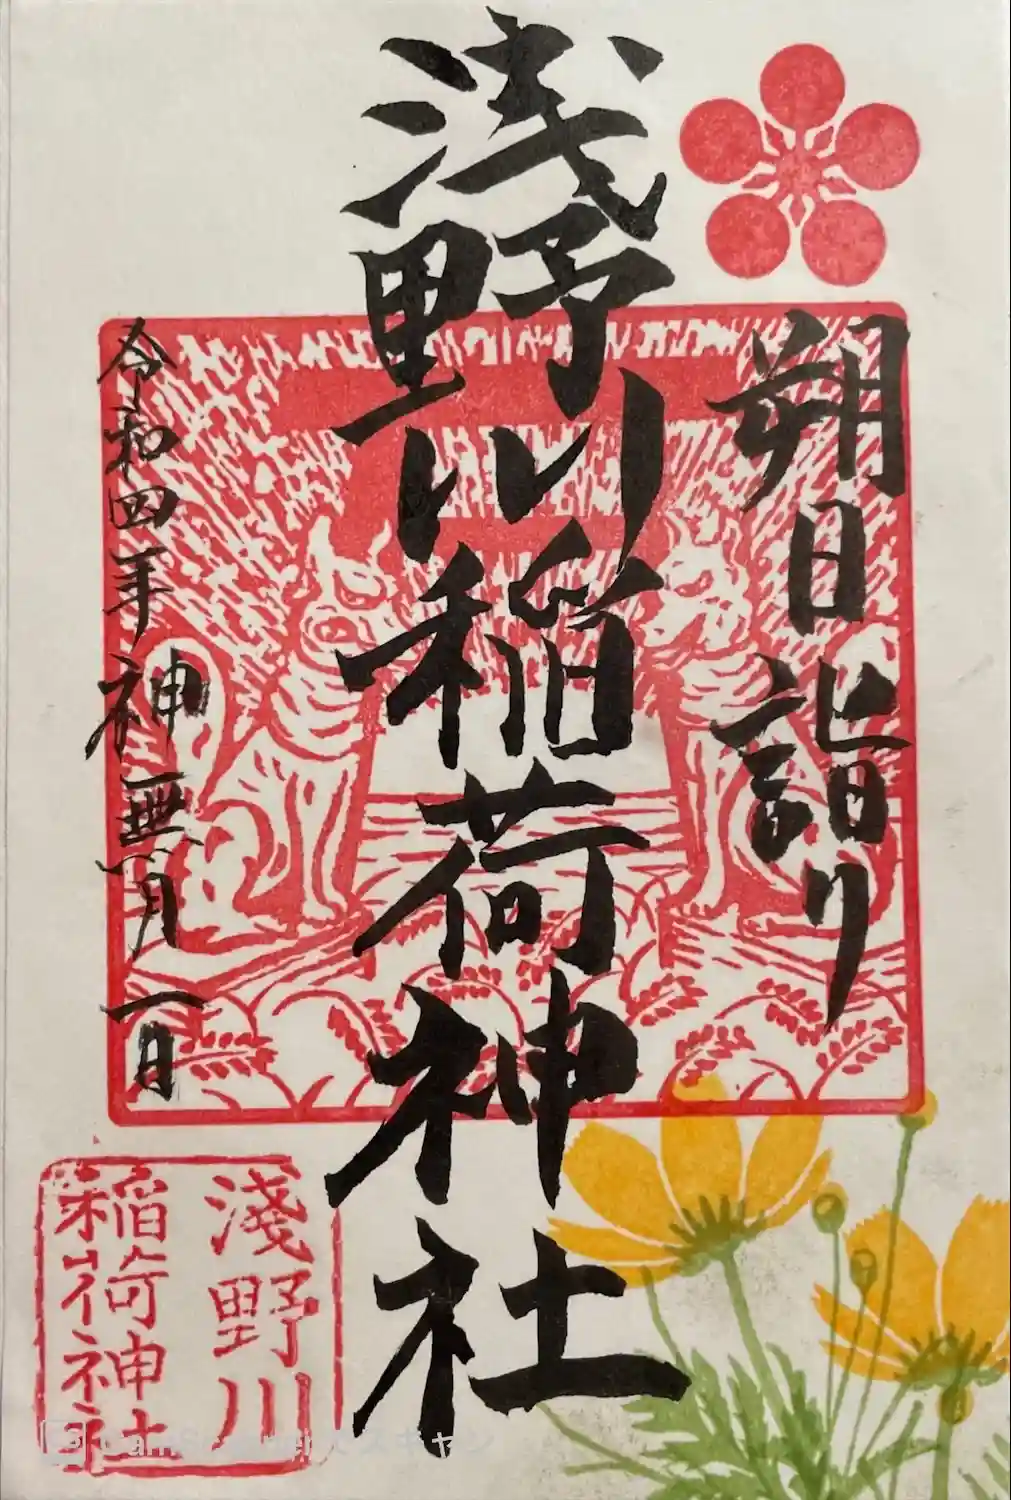 朔日詣り
浅野川稲荷神社
令和四年神無月一日
淺野川
稲荷神社